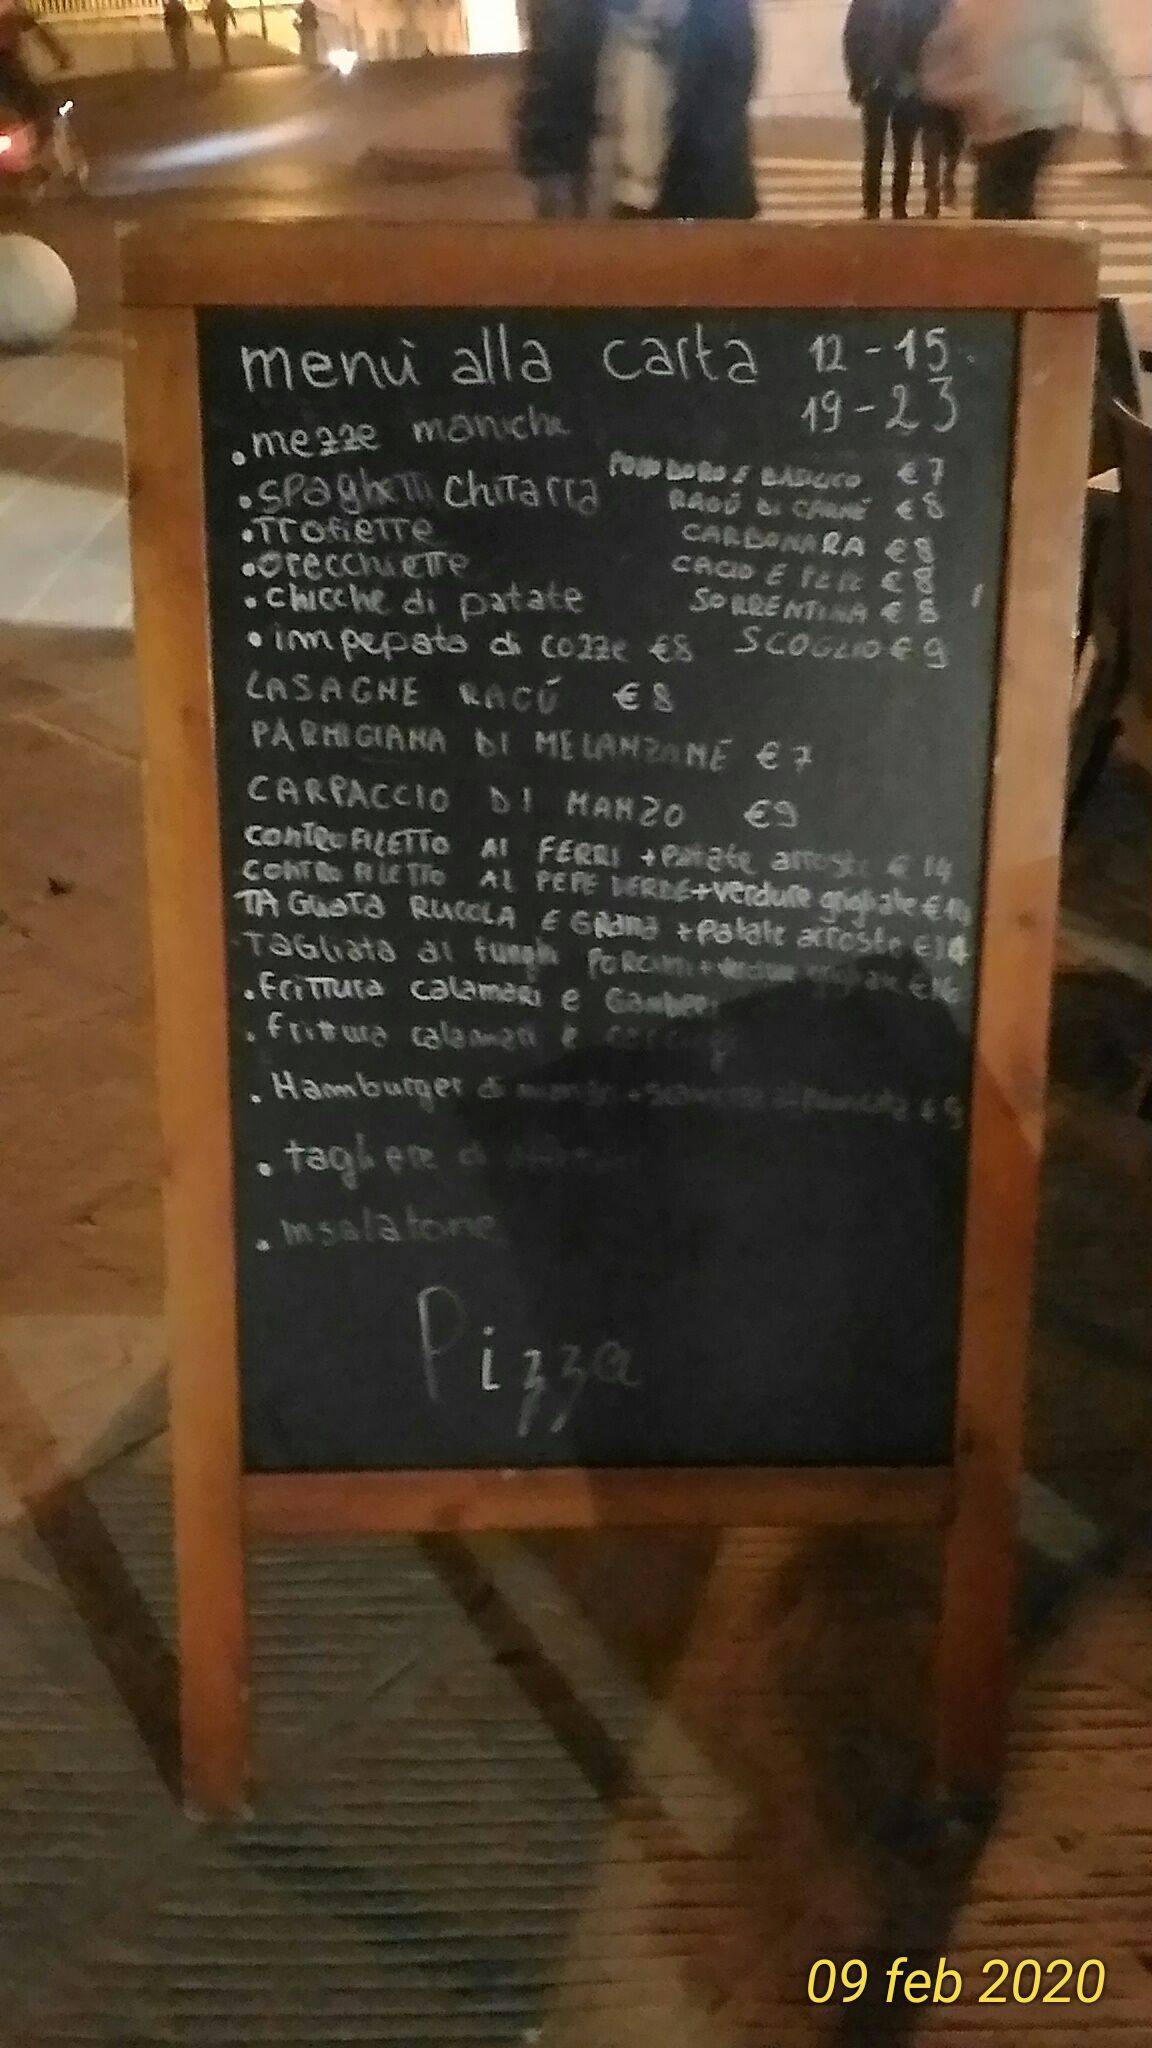 menù alla carta 12-15
19-23
.mezze maniche
POMODORO E BASILICO €7
.spaghetti chitarra
RAGÚ DI CARNE €8
.Trofiette
CARBONARA €8
.orecchiette
CACIO E PEPE €8
.chicche di patate
SORRENTINA €8
.impepata di cozze €8 SCOGLIO €9
LASAGNE RAGÚ €8
PARMIGIANA DI MELANZANE €7
CARPACCIO DI MANZO €9
CONTROFILETTO AI FERRI + Patate arroste €14
CONTROFILETTO AL PEPE VERDE + verdure grigliate
TAGLIATA RUCOLA E GRANA + patate arroste €14
TAGLIATA ai funghi PORCINI + verdure grigliate
.frittura calamari e Gamberi
.frittura calamari e
.Hamburger di €9
.tagliere di
.insalatone
Pizza
09 feb 2020